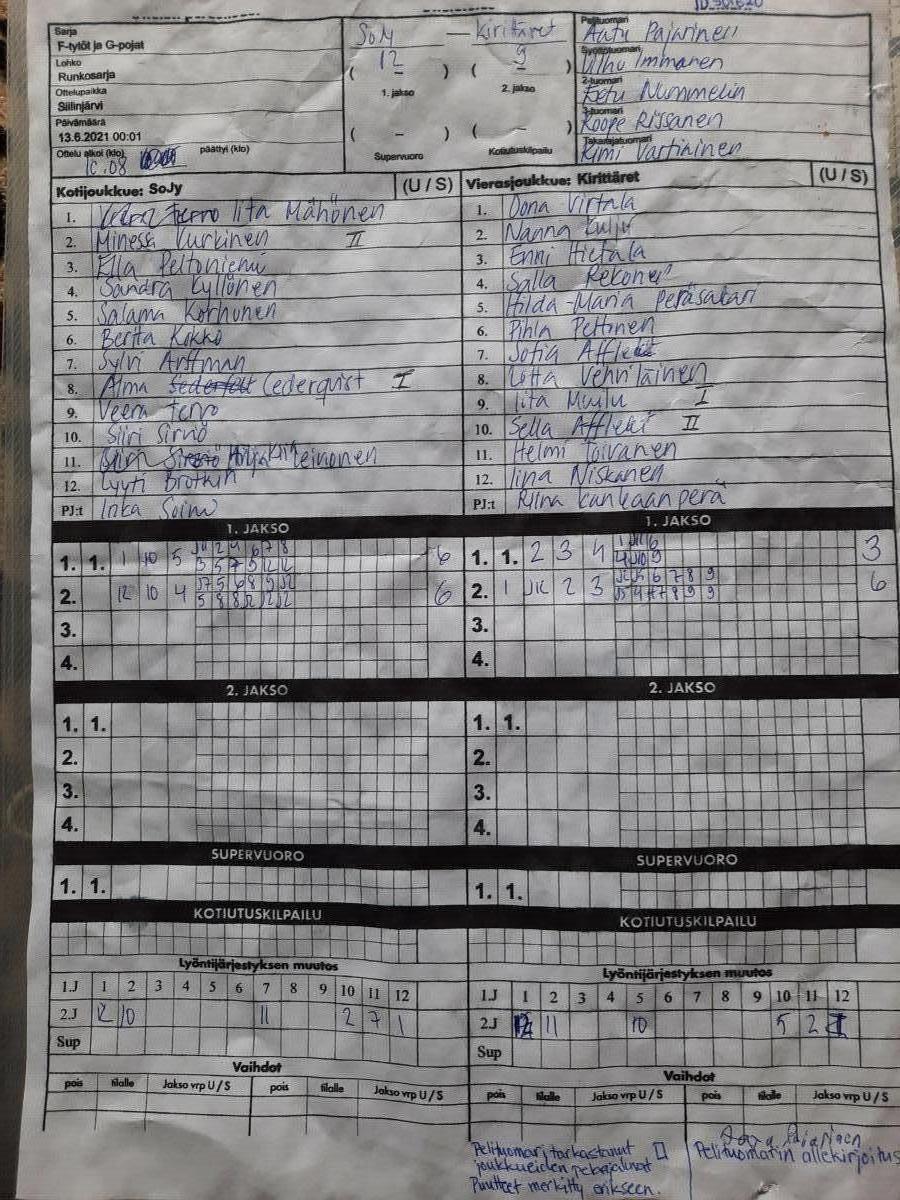 Sarja
F-tytöt ja G-pojat
Lohko
Runkosarja
Ottelupaikka
Siilinjärvi
Päivämäärä
13.6.2021 00:01
Ottelu alkoi (klo) päättyi (klo)
10.08
SoJy — Kirittäret
( 12 – ) ( 9 – )
1. jakso 2. jakso
( – ) ( – )
Supervuoro Kotiutuskilpailu
Pelituomari
Aatu Pajarinen
Syöttötuomari
Uhu Immonen
2-tuomari
Eetu Nummelin
3-tuomari
Roope Rissanen
Takarajatuomari
Kimi Vartiainen
Kotijoukkue: SoJy (U / S)
1. Iita Mähönen
2. Minessa Kurkinen II
3. Ella Peltoniemi
4. Sandra Kyllönen
5. Salama Korhonen
6. Berita Kokko
7. Sylvi Arffman
8. Alma Cederqvist I
9. Veera Tervo
10. Siiri Sirnö
11.
12. Lyyti Brotkin
PJ:t Inka Soini
Vierasjoukkue: Kirittäret (U / S)
1. Oona Virtala
2. Nanna Kulju
3. Enni Hietala
4. Salla Rekonen
5. Hilda-Maria Peräsalari
6. Pihla Peltinen
7. Sofia Afflekt
8. Lotta Vehviläinen
9. Iita Muulu I
10. Sella Afflekt II
11. Helmi Toivanen
12. Iina Niskanen
PJ:t Riina Kankaanperä
1. JAKSO 1. JAKSO
1. 1. 1 10 5 6
2. 12 10 4 6
3.
4.
1. 1. 2 3 4 3
2. 1 2 3 6
3.
4.
2. JAKSO 2. JAKSO
1. 1.
2.
3.
4.
1. 1.
2.
3.
4.
SUPERVUORO SUPERVUORO
1. 1.
1. 1.
KOTIUTUSKILPAILU KOTIUTUSKILPAILU
Lyöntijärjestyksen muutos
1.J 1 2 3 4 5 6 7 8 9 10 11 12
2.J 12 10 11 2 7 1
Sup
Lyöntijärjestyksen muutos
1.J 1 2 3 4 5 6 7 8 9 10 11 12
2.J 12 11 10 5 2 1
Sup
Vaihdot Vaihdot
pois tilalle Jakso vrp U / S pois tilalle Jakso vrp U / S
pois tilalle Jakso vrp U / S pois tilalle Jakso vrp U / S
Pelituomari tarkastanut
joukkueiden pelaajalinat
Puutteet merkitty erikseen.
Pelituomarin allekirjoitus